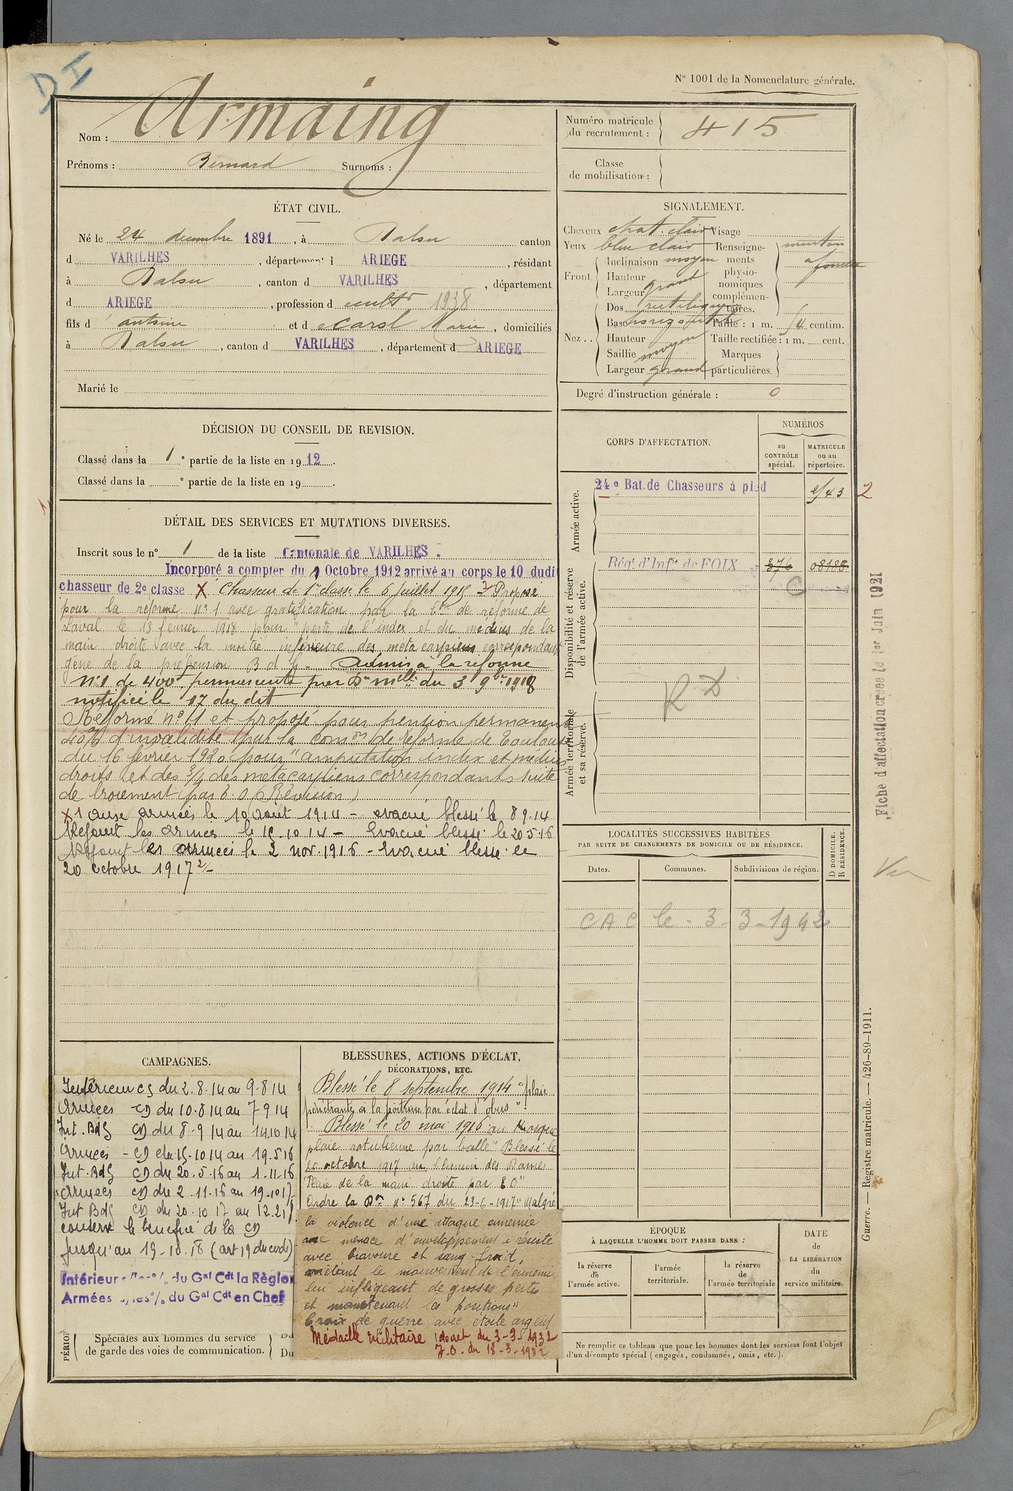 D I
N° 1001 de la Nomenclature générale.
Nom : Armaing
Prénoms : Bernard Surnoms :
Numéro matricule du recrutement : 415
Classe de mobilisation :
ÉTAT CIVIL.
Né le 24 décembre 1891, à Dalou canton
d VARILHES, département d ARIEGE, résidant
à Dalou, canton d VARILHES, département
d ARIEGE, profession d cultr 1938
fils d antoine et d Marie, domiciliés
à Dalou, canton d VARILHES, département d ARIEGE
Marié le
SIGNALEMENT.
Cheveux chat. clair Visage
Yeux bleu clair Renseignements physionomiques complémentaires. menton à fossette
Front. Inclinaison moyen
Hauteur
Largeur grand
Nez. Dos rectiligne
Base horizontale Taille : 1 m. centim.
Hauteur Taille rectifiée : 1 m. cent.
Saillie moyen Marques
Largeur grand particulières.
Degré d'instruction générale : 0
DÉCISION DU CONSEIL DE REVISION.
Classé dans la 1e partie de la liste en 1912.
Classé dans la e partie de la liste en 19 .
DÉTAIL DES SERVICES ET MUTATIONS DIVERSES.
Inscrit sous le n° 1 de la liste Cantonale de VARILHES.
Incorporé a compter du 9 Octobre 1912 arrivé au corps le 10 dudit
chasseur de 2e classe X Chasseur de 1e classe le 6 juillet 1915 2 Proposé
pour la réforme n° 1 avec gratification par la Con de réforme de
Laval le 13 février 1918 pour "perte de l'index et du médius de la
main droite avec la moitié inférieure des métacarpiens correspondants
gêne de la préhension B d G. Admis à la réforme
n° 1 de 400f permanente par Don mlle du 3 9bre 1918
notifiée le 17 du dit
Réformé n° 1 et proposé pour pention permanente
40% d'invalidité par la comon de réforme de Toulouse
du 16 février 1920 pour "amputation index et médius
droits et des 3/4 des métacarpiens correspondants suite
de broiement par E. O (Révision)
X 1 aux armées le 10 août 1914 - évacué blessé le 8.9.14
Rejoint les armées le 15.10.14 - Evacué blessé le 20.5.16
Rejoint les armées le 2 nov. 1916 - Evacué blessé le
20 octobre 1917 2/-
CORPS D'AFFECTATION.
NUMÉROS
au CONTRÔLE spécial.
MATRICULE ou au répertoire.
Armée active.
24e Bat. de Chasseurs à pied 2
Disponibilité et réserve de l'armée active.
Rég. d'Infie de FOIX
C
Armée territoriale et sa réserve.
R D
Fiche d'affectation créée le 1er Juin 1921
LOCALITÉS SUCCESSIVES HABITÉES
PAR SUITE DE CHANGEMENTS DE DOMICILE OU DE RÉSIDENCE.
Dates. Communes. Subdivisions de région.
D DOMICILE.
R RÉSIDENCE.
Vu
CAC le - 3 - 3 - 1942
CAMPAGNES.
Intérieur CS du 2.8.14 au 9.8.14
Armées CD du 10.8.14 au 7.9.14
Int. Bdg CD du 8.9.14 au 14.10.14
Armées CD du 15.10.14 au 19.5.16
Int. Bdg CD du 20.5.16 au 1.11.16
Armées CD du 2.11.16 au 19.10.17
Int Bdg CD du 20.10.17 au
conserve le bénéfice de la CD
jusqu'au 19.10.18 (art 19 du)
Intérieur du Gal Cdt la Région
Armées du Gal Cdt en Chef
Spéciales aux hommes du service
de garde des voies de communication.
Du
Du
BLESSURES, ACTIONS D'ÉCLAT,
DÉCORATIONS, ETC.
Blessé le 8 septembre 1914 "plaie
pénétrante à la poitrine par éclat d'obus".
Blessé le 20 mai 1916 au
plaie rotulienne par balle" Blessé le
20 octobre 1917 au chemin des Dames
"Plaie de la main droite par E O"
Ordre la Don n° 567 du 23-6-1917 "Malgré
la violence d'une attaque ennemie
une menace d'enveloppement a résisté
avec bravoure et sang-froid,
arrêtant le mouvement de l'ennemi
lui infligeant de grosses pertes
et maintenant les positions"
Croix de guerre avec étoile argent
Médaille Militaire décret du 3-3-1932
J.O. du 13-3-1932
ÉPOQUE
À LAQUELLE L'HOMME DOIT PASSER DANS :
la réserve de l'armée active.
l'armée territoriale.
la réserve de l'armée territoriale
DATE de LA LIBÉRATION du service militaire.
Ne remplir ce tableau que pour les hommes dont les services font l'objet
d'un décompte spécial (engagés, condamnés, omis, etc.).
Guerre. — Registre matricule. — 426-89-1911.